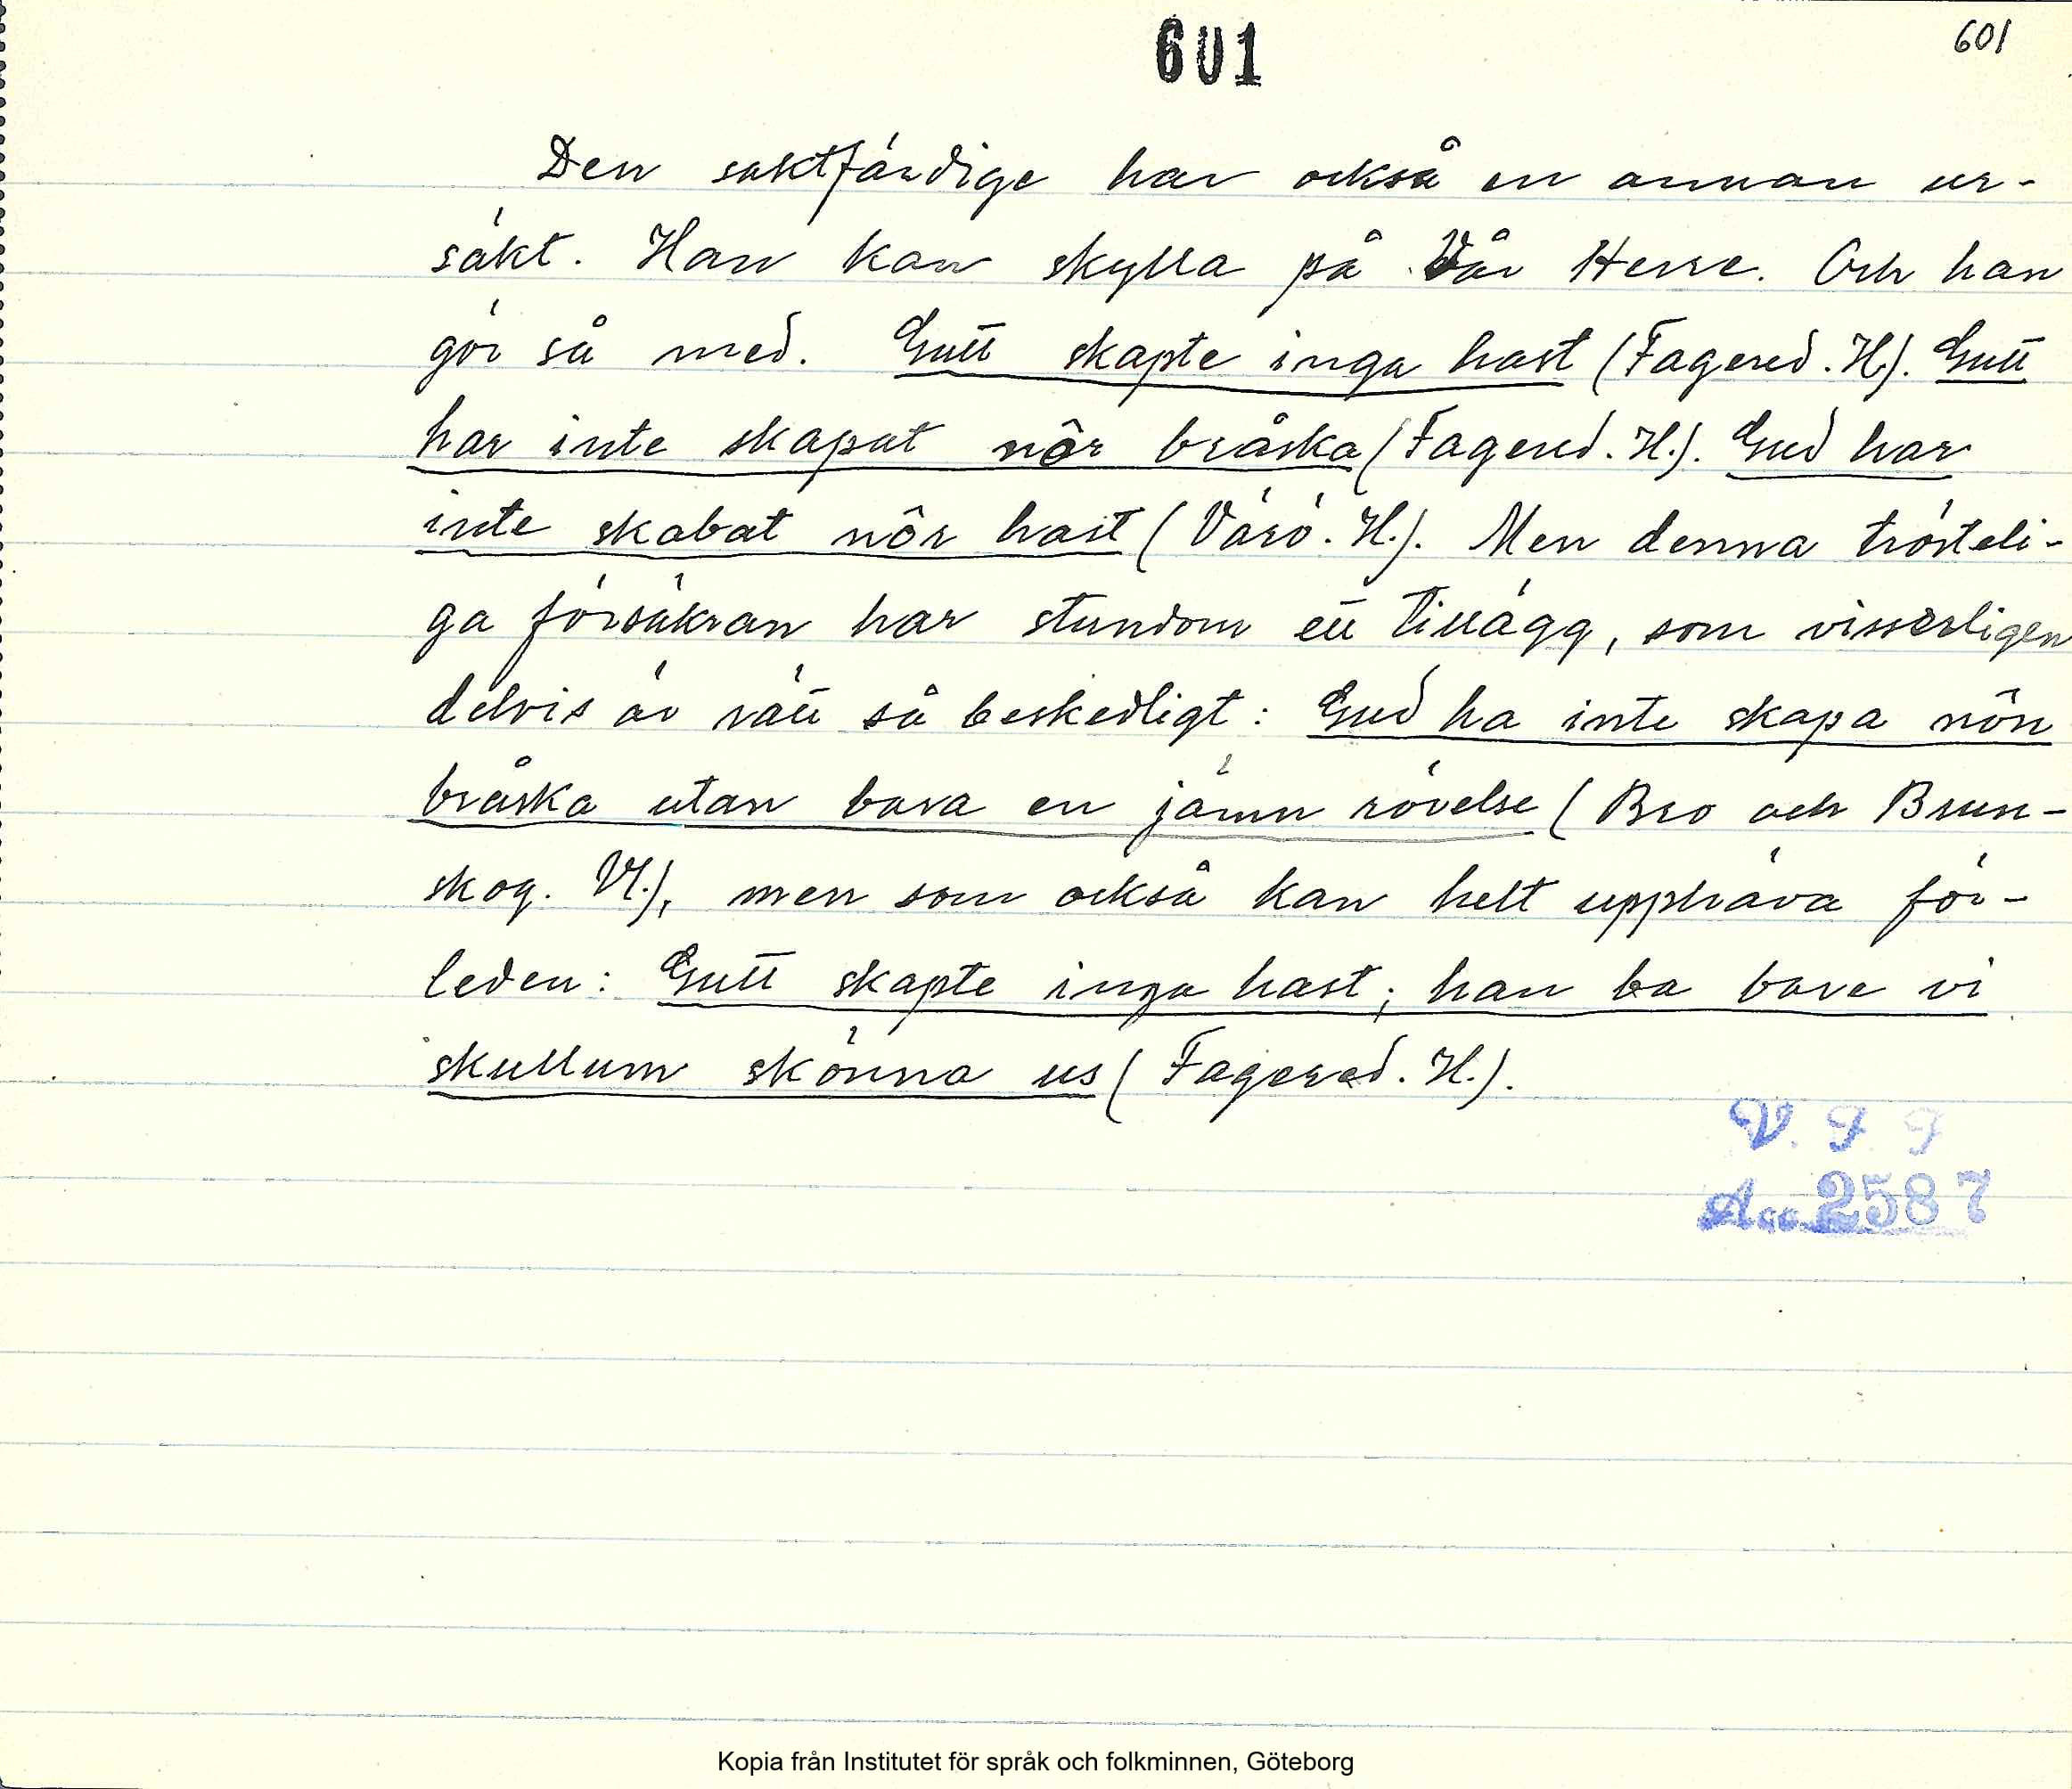 601
601
Den saktfärdige har också en annan ur-
säkt. Han kan skylla på Vår Herre. Och han
gör så med. Gutt skapte inga hast (Fagered. H.). Gutt
har inte skapat nôr bråska (Fagered. H.). Gud har
inte skabat nôr hast (Värö. H.). Men denna trösteli-
ga försäkran har stundom ett tillägg, som visserligen
delvis är rätt så beskedligt: Gud ha inte skapa nôn
bråska utan bara en jämn rövelse (Bro och Brun-
skog. Vl.), men som också kan helt upphäva för-
leden: Gutt skapte inga hast; han ba bare vi
skullum skönna us (Fagered. H.).
V. F F
Acc. 2587
Kopia från Institutet för språk och folkminnen, Göteborg